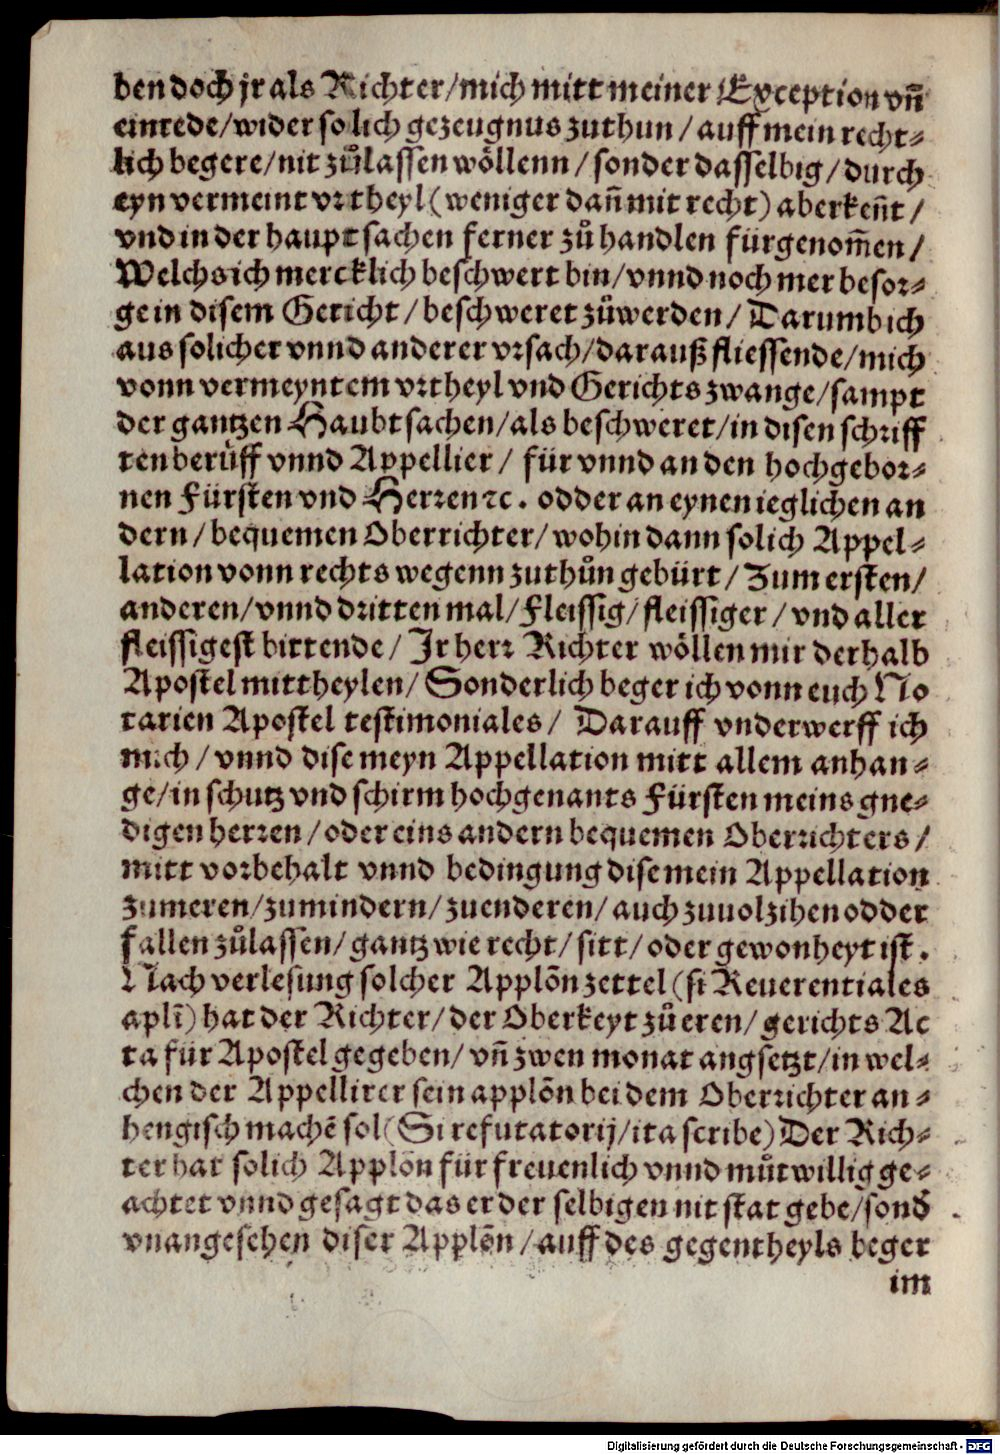 ben doch jr als Richter/mich mitt meiner Exception vñ
einrede/wider solich gezeugnus zuthun/auff mein recht⸗
lich begere/nit zůlassen wöllenn/sonder dasselbig/durch
eyn vermeint vrtheyl(weniger dañ mit recht)aberkeñt/
vnd in der hauptsachen ferner zů handlen fürgenom̄en/
Welchs ich mercklich beschwert bin/vnnd noch mer besor⸗
ge in disem Gericht/beschweret zůwerden/Darumb ich
aus solicher vnnd anderer vrsach/darauß fliessende/mich
vonn vermeyntem vrtheyl vnd Gerichts zwange/sampt
der gantzen Haubtsachen/als beschweret/in disen schriff
ten berůff vnnd Appellier/für vnnd an den hochgebor⸗
nen Fürsten vnd Herren ꝛc. odder an eynen ieglichen an
dern/bequemen Oberrichter/wohin dann solich Appel⸗
lation vonn rechts wegenn zuthůn gebürt/Zum ersten/
anderen/vnnd dritten mal/Fleissig/fleissiger/vnd aller
fleissigest bittende/Jr herr Richter wöllen mir derhalb
Apostel mittheylen/Sonderlich beger ich vonn euch No
tarien Apostel testimoniales/Darauff vnderwerff ich
mich/vnnd dise meyn Appellation mitt allem anhan⸗
ge/in schutz vnd schirm hochgenants Fürsten meins gne⸗
digen herren/oder eins andern bequemen Oberrichters/
mitt vorbehalt vnnd bedingung dise mein Appellation
zumeren/zumindern/zuenderen/auch zuuolzihen odder
fallen zůlassen/gantz wie recht/sitt/oder gewonheyt ist.
Nach verlesung solcher Applõn zettel(si Reuerentiales
aplĩ)hat der Richter/der Oberkeyt zů eren/gerichts Ac
ta für Apostel gegeben/vñ zwen monat angsetzt/in wel⸗
chen der Appellirer sein applõn bei dem Oberrichter an⸗
hengisch machẽ sol(Si refutatorij/ita scribe)Der Rich⸗
ter hat solich Applõn für freuenlich vnnd můtwillig ge⸗
achtet vnnd gesagt das er der selbigen nit stat gebe/sond̕
vnangesehen diser Applõn/auff des gegentheyls beger
im
Digitalisierung gefördert durch die Deutsche Forschungsgemeinschaft - DFG